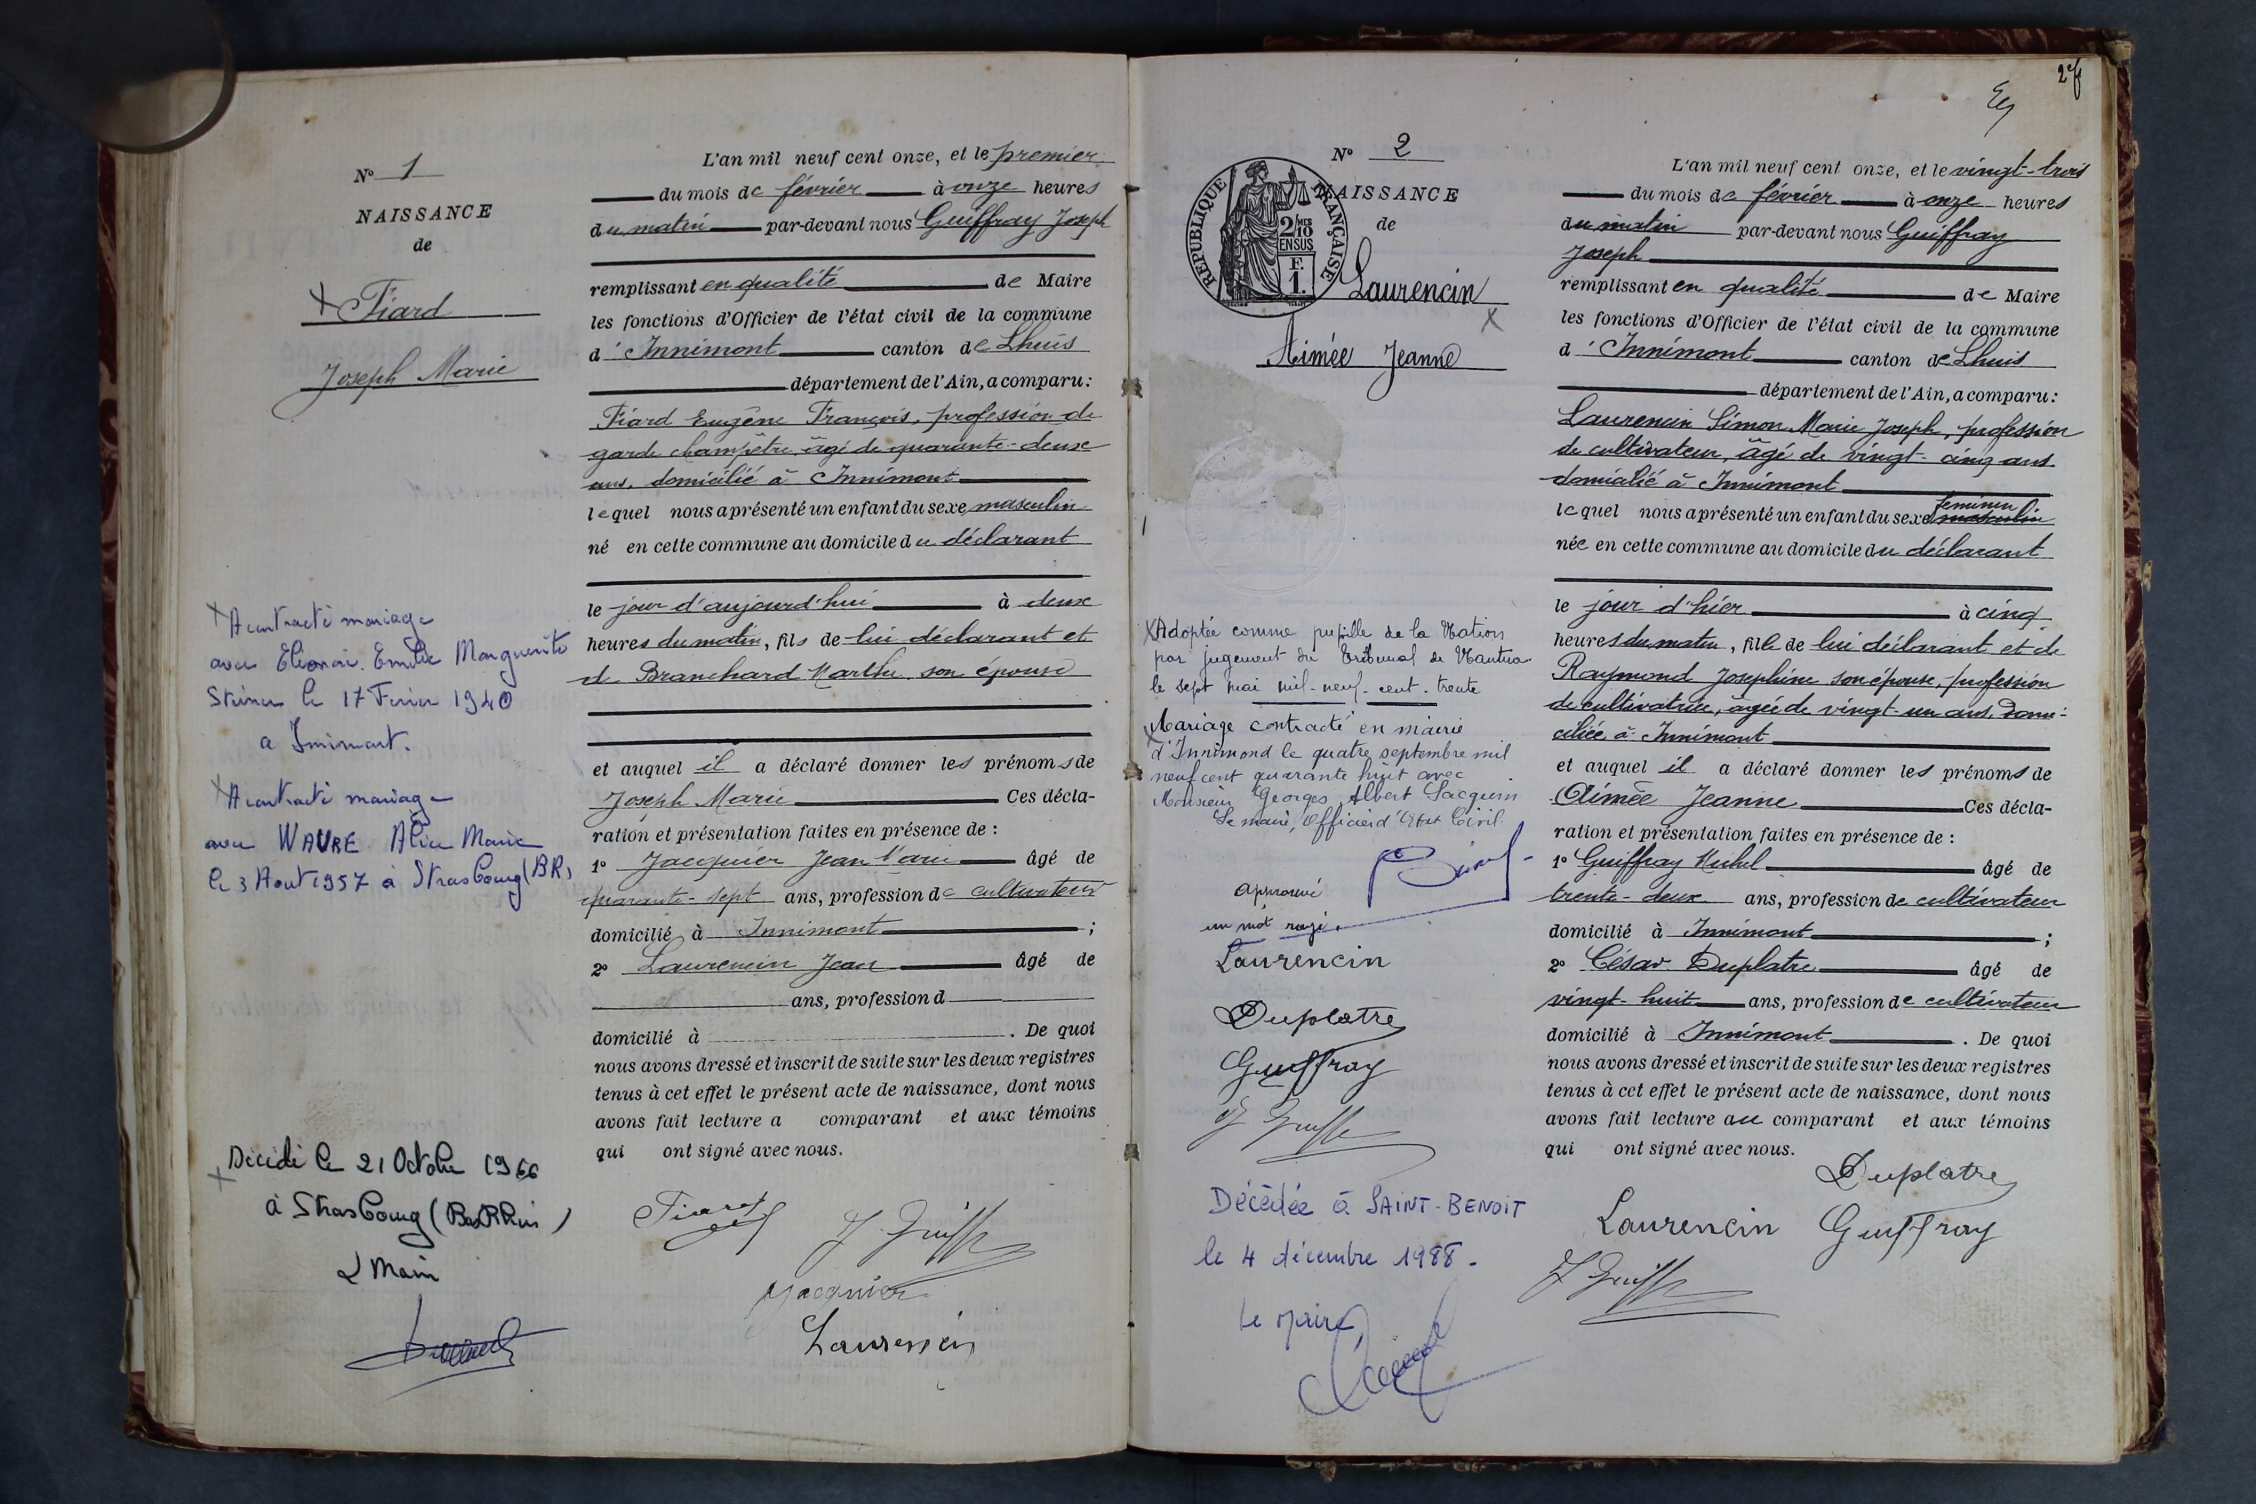 N° 1
NAISSANCE
de
X Fiard
Joseph Marie
X A contracté mariage
avec Eléonore Emilie Marguerite
le 17 Fevrier 1940
a Innimont.
X A contracté mariage
avec WAVRE Alice Marie
le 3 Aout 1957 à Strasbourg (BR)
X Décédé le 21 Octobre 1966
à Strasbourg (Bas Rhin)
L Maire
L'an mil neuf cent onze, et le premier
du mois de février à onze heures
du matin par-devant nous Guiffray Joseph
remplissant en qualité de Maire
les fonctions d'Officier de l'état civil de la commune
d'Innimont canton de Lhuis
département de l'Ain, a comparu:
Fiard Eugène François, profession de
garde champêtre, âgé de quarante-deux
ans, domicilié à Innimont
lequel nous a présenté un enfant du sexe masculin
né en cette commune au domicile du déclarant
le jour d'aujourd'hui à deux
heures du matin, fils de lui déclarant et
de Branchard Marthe son épouse
et auquel il a déclaré donner les prénoms de
Joseph Marie Ces décla-
ration et présentation faites en présence de :
1° Jacquier Jean âgé de
quarante-sept ans, profession de cultivateur
domicilié à Innimont ;
2° Laurencin Jean âgé de
ans, profession d
domicilié à . De quoi
nous avons dressé et inscrit de suite sur les deux registres
tenus à cet effet le présent acte de naissance, dont nous
avons fait lecture a comparant et aux témoins
qui ont signé avec nous.
Fiard J. Guiff
Jacquier
Laurencin
2 f
N° 2
NAISSANCE
de
REPUBLIQUE FRANÇAISE
2/10
EN SUS
F.
1.
Laurencin
X
Aimée Jeanne
X Adoptée comme pupille de la Nation
par jugement du Tribunal de Nantua
le sept mai mil-neuf-cent-trente
X Mariage contracté en mairie
d'Innimond le quatre septembre mil
neuf cent quarante huit avec
Monsieur Georges Albert Jacquem
Le maire, Officier d'Etat Civil.
approuvé
un mot rayé.
Laurencin
Duplatre
Guiffray
J Guiff
Décédée à SAINT-BENOIT
le 4 décembre 1988.
Le Maire,
L'an mil neuf cent onze, et le vingt-trois
du mois de février à onze heures
du matin par-devant nous Guiffray
Joseph
remplissant en qualité de Maire
les fonctions d'Officier de l'état civil de la commune
d'Innimont canton de Lhuis
département de l'Ain, a comparu:
Laurencin Simon Marie Joseph, profession
de cultivateur, âgé de vingt-cinq ans
domicilié à Innimont
féminin
lequel nous a présenté un enfant du sexe masculin
née en cette commune au domicile du déclarant
le jour d'hier à cinq
heures du matin, fille de lui déclarant et de
Raymond Joséphine son épouse, profession
de cultivatrice, âgée de vingt-un ans, domi-
ciliée à Innimont
et auquel il a déclaré donner les prénoms de
Aimée Jeanne Ces décla-
ration et présentation faites en présence de :
1° Guiffray Michel âgé de
trente-deux ans, profession de cultivateur
domicilié à Innimont ;
2° César Duplatre âgé de
vingt-huit ans, profession de cultivateur
domicilié à Innimont . De quoi
nous avons dressé et inscrit de suite sur les deux registres
tenus à cet effet le présent acte de naissance, dont nous
avons fait lecture au comparant et aux témoins
qui ont signé avec nous.
Duplatre
Laurencin Guiffray
J Guiff